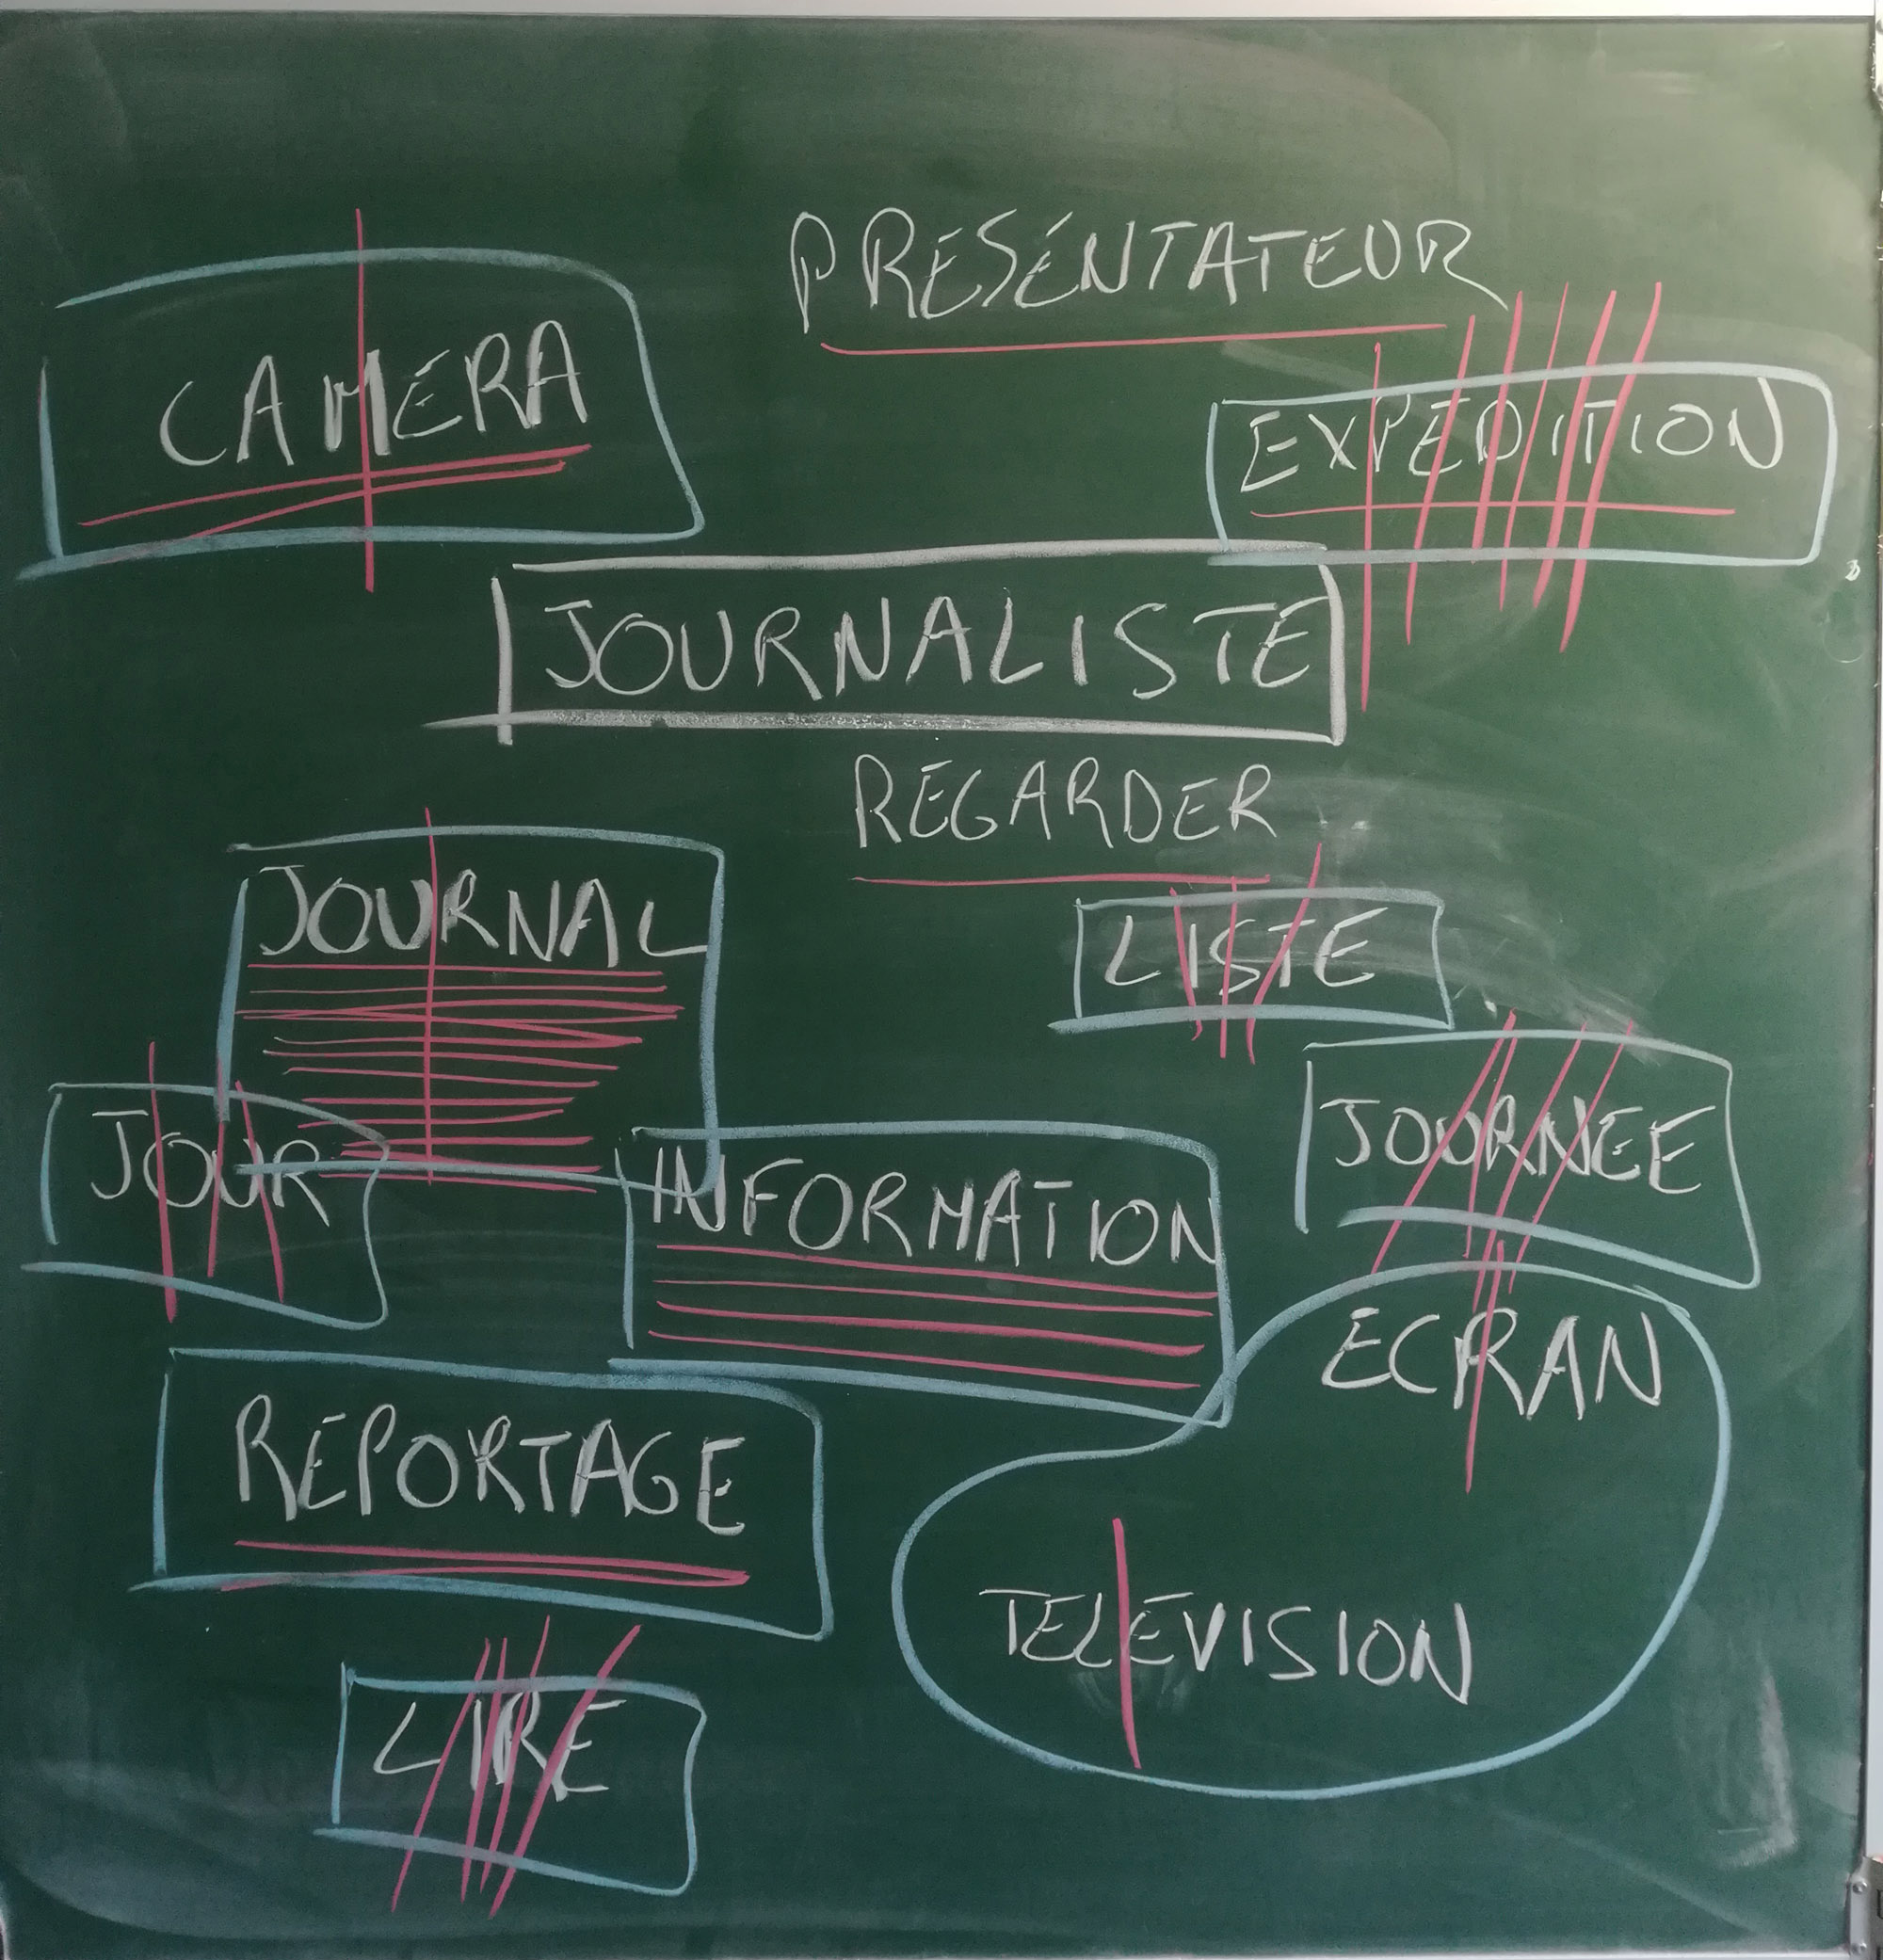 PRÉSÉNTATEUR
CAMÉRA
EXPÉDITION
JOURNALISTE
REGARDER
JOURNAL
LISTE
JOURNÉE
JOUR
INFORMATION
ECRAN
REPORTAGE
TELÉVISION
LIRE